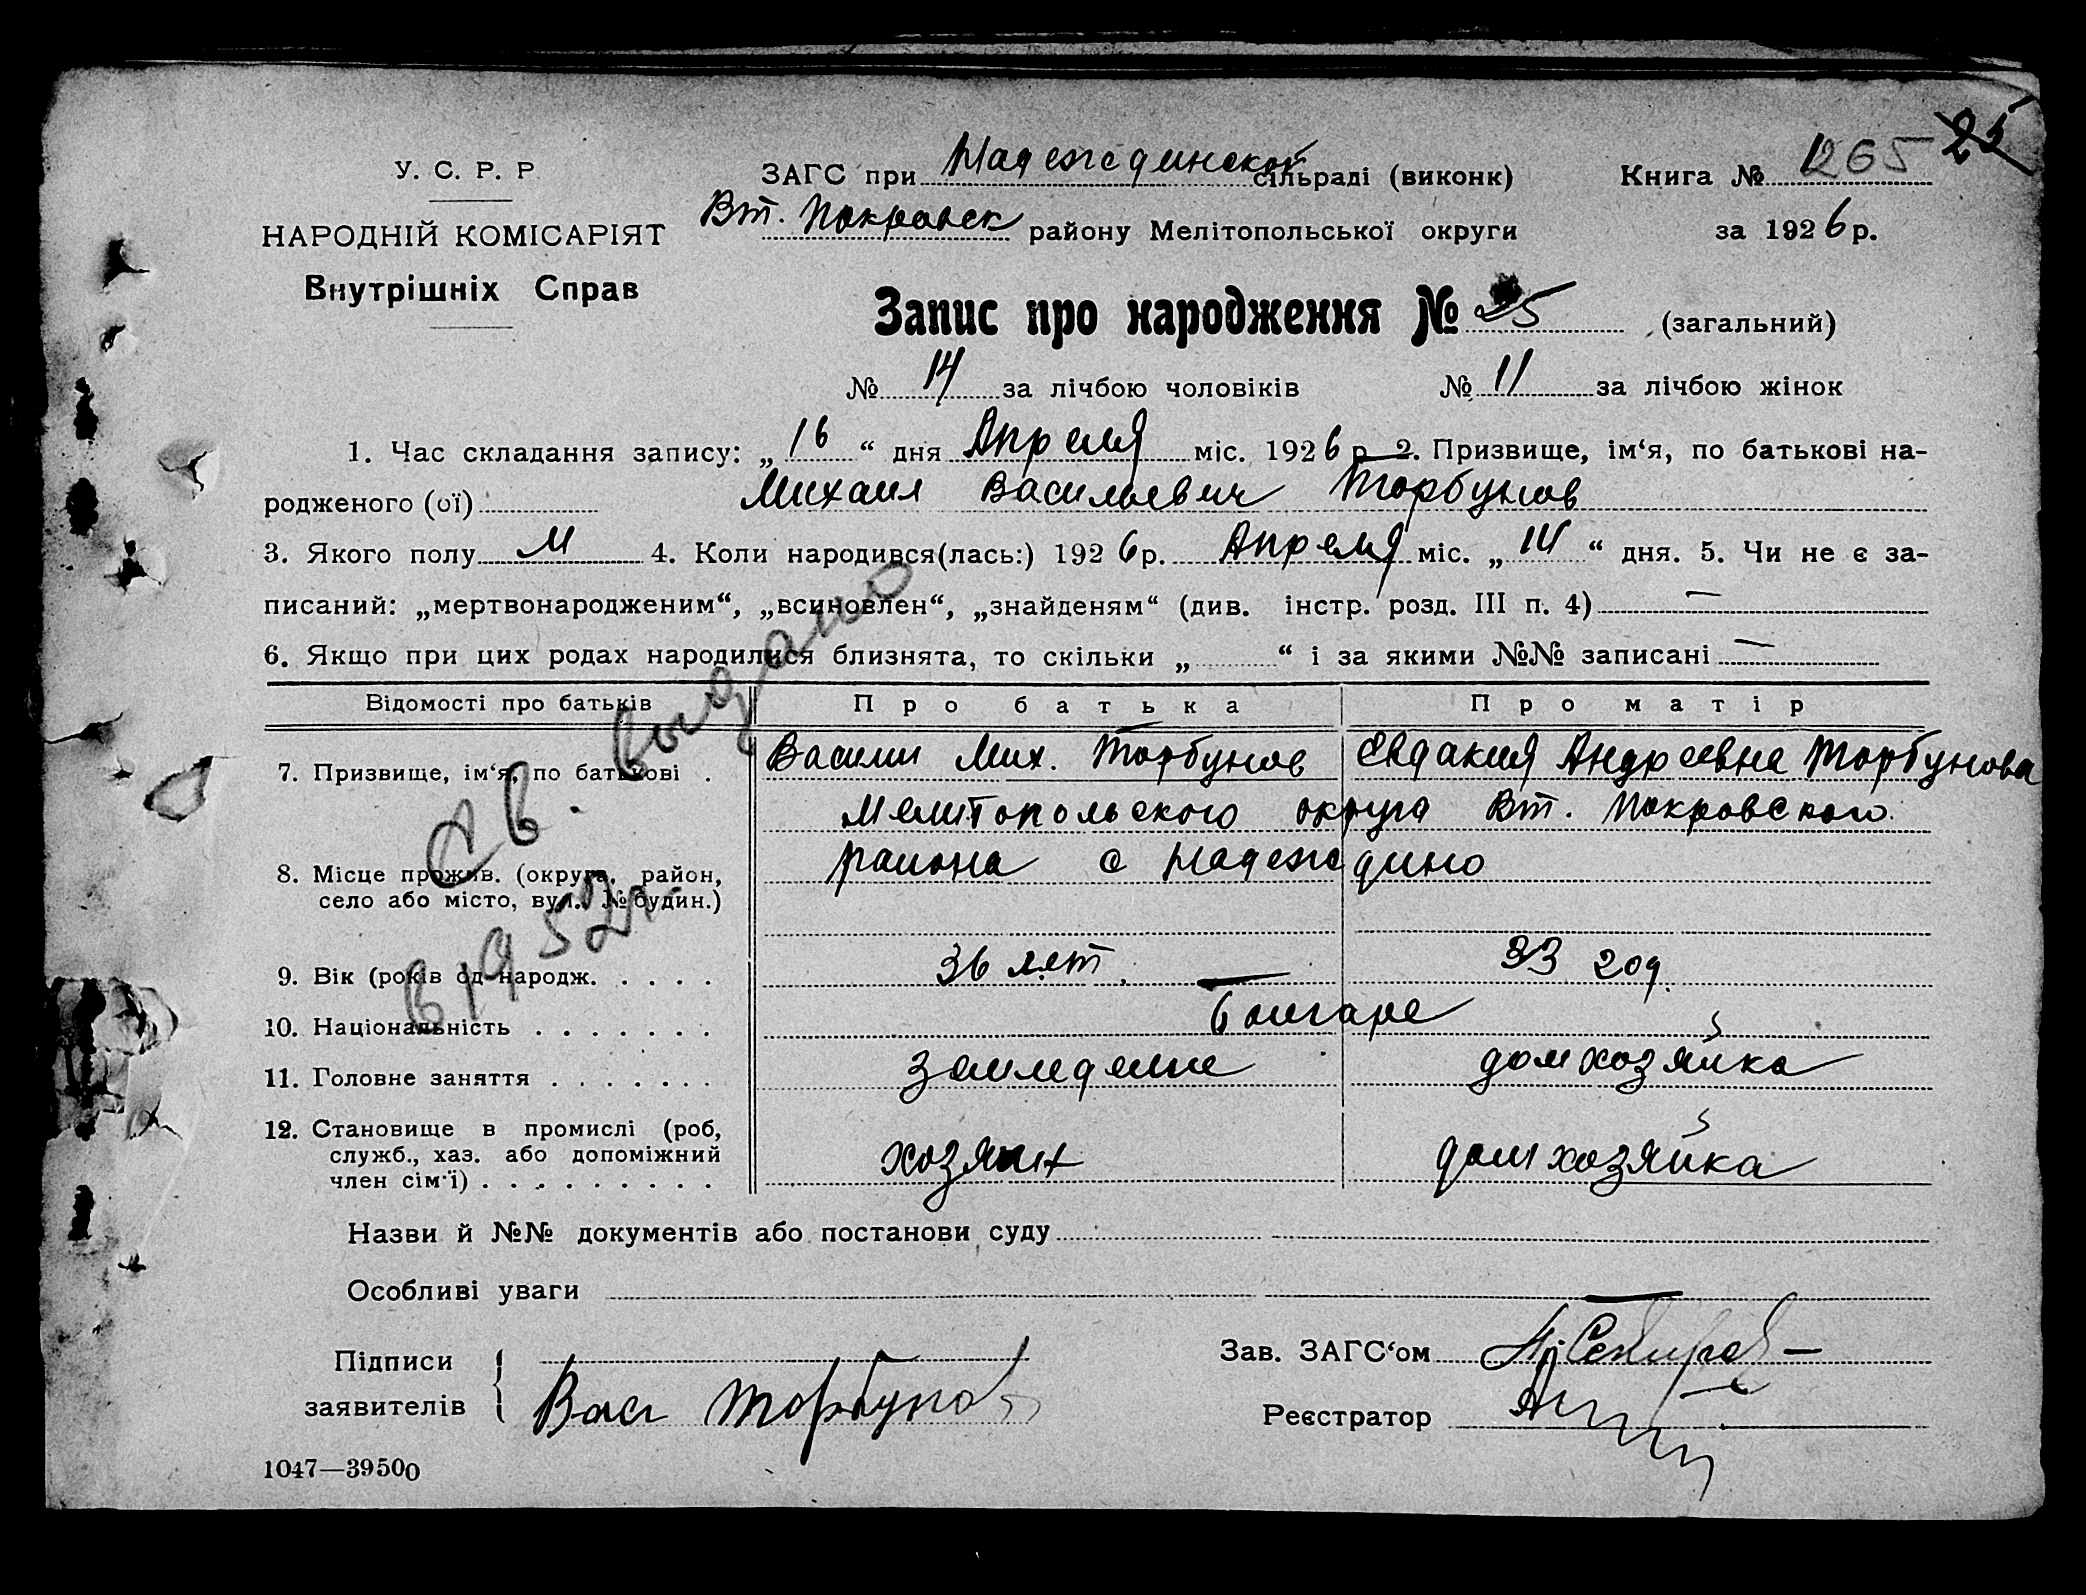 25
У. С. Р. Р
ЗАГС при Надеждинской сільраді (виконк)
Книга № 1265
НАРОДНІЙ КОМІСАРІЯТ
Вт. Покровск району Мелітопольської округи
за 1926 р.
Внутрішніх Справ
Запис про народження № 25 (загальний)
№ 14 за лічбою чоловіків № 11 за лічбою жінок
1. Час складання запису: „16“ дня Апреля міс. 1926 р. 2. Призвище, ім‘я, по батькові на-
родженого (ої) Михаил Васильевич Торбунов
3. Якого полу М 4. Коли народився(лась:) 1926 р. Апреля міс. „14“ дня. 5. Чи не є за-
писаний: „мертвонародженим“, „всиновлен“, „знайденям“ (див. інстр. розд. III п. 4) —
6. Якщо при цих родах народилися близнята, то скільки „ “ і за якими №№ записані —
Відомості про батьків Про батька Про матір
7. Призвище, ім‘я, по батькові . Василий Мих. Торбунов Евдакия Андреевна Торбунова
Мелитопольского округа Вт. Покровского
8. Місце прожив. (округа, район, района с Надеждино
село або місто, вул., № будин.)
9. Вік (років од народж. . . . . 36 лет 33 год.
10. Національність . . . . . . . Болгаре
11. Головне заняття . . . . . . . Земледелие домхозяйка
12. Становище в промислі (роб, служб., хаз. або допоміжний член сім‘ї) . . . . . . . . . хозяин домхозяйка
Св. выдано
в 1952 г.
Назви й №№ документів або постанови суду
Особливі уваги
Підписи
заявителів
Вас Торбунов
Зав. ЗАГС‘ом
Реєстратор
1047—39500